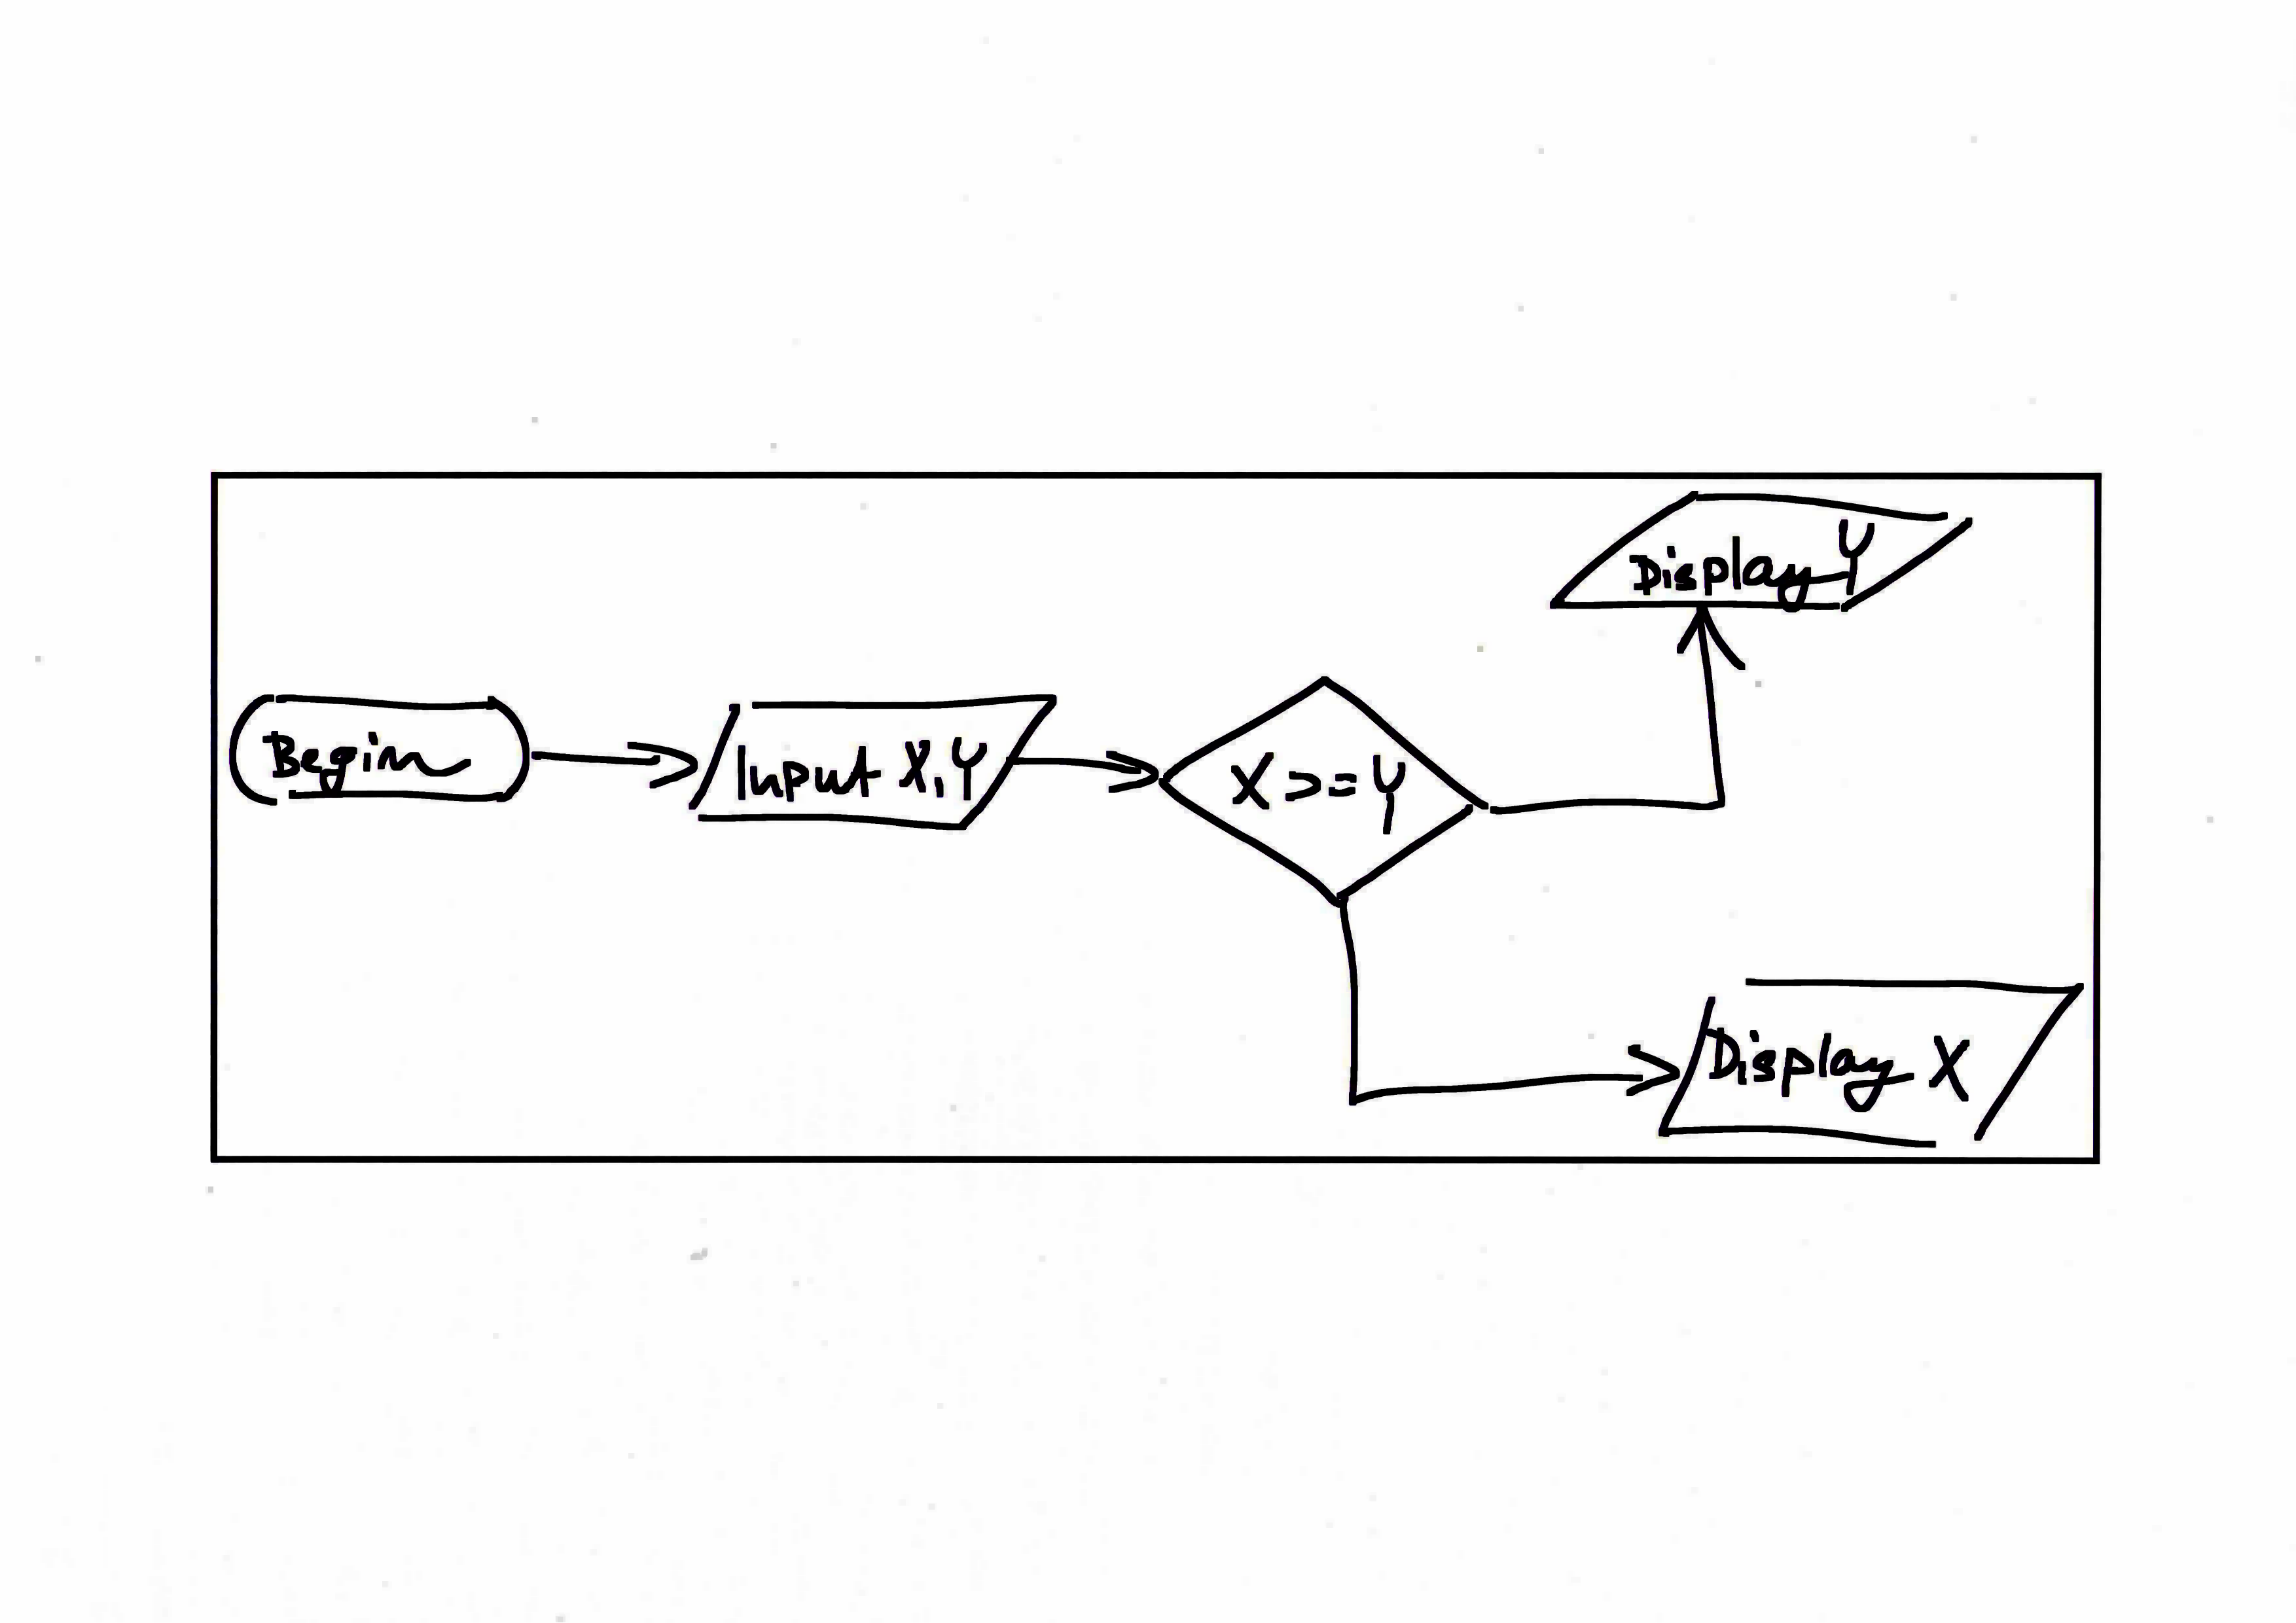 Begin
Input X, Y
X >= Y
Display Y
Display X